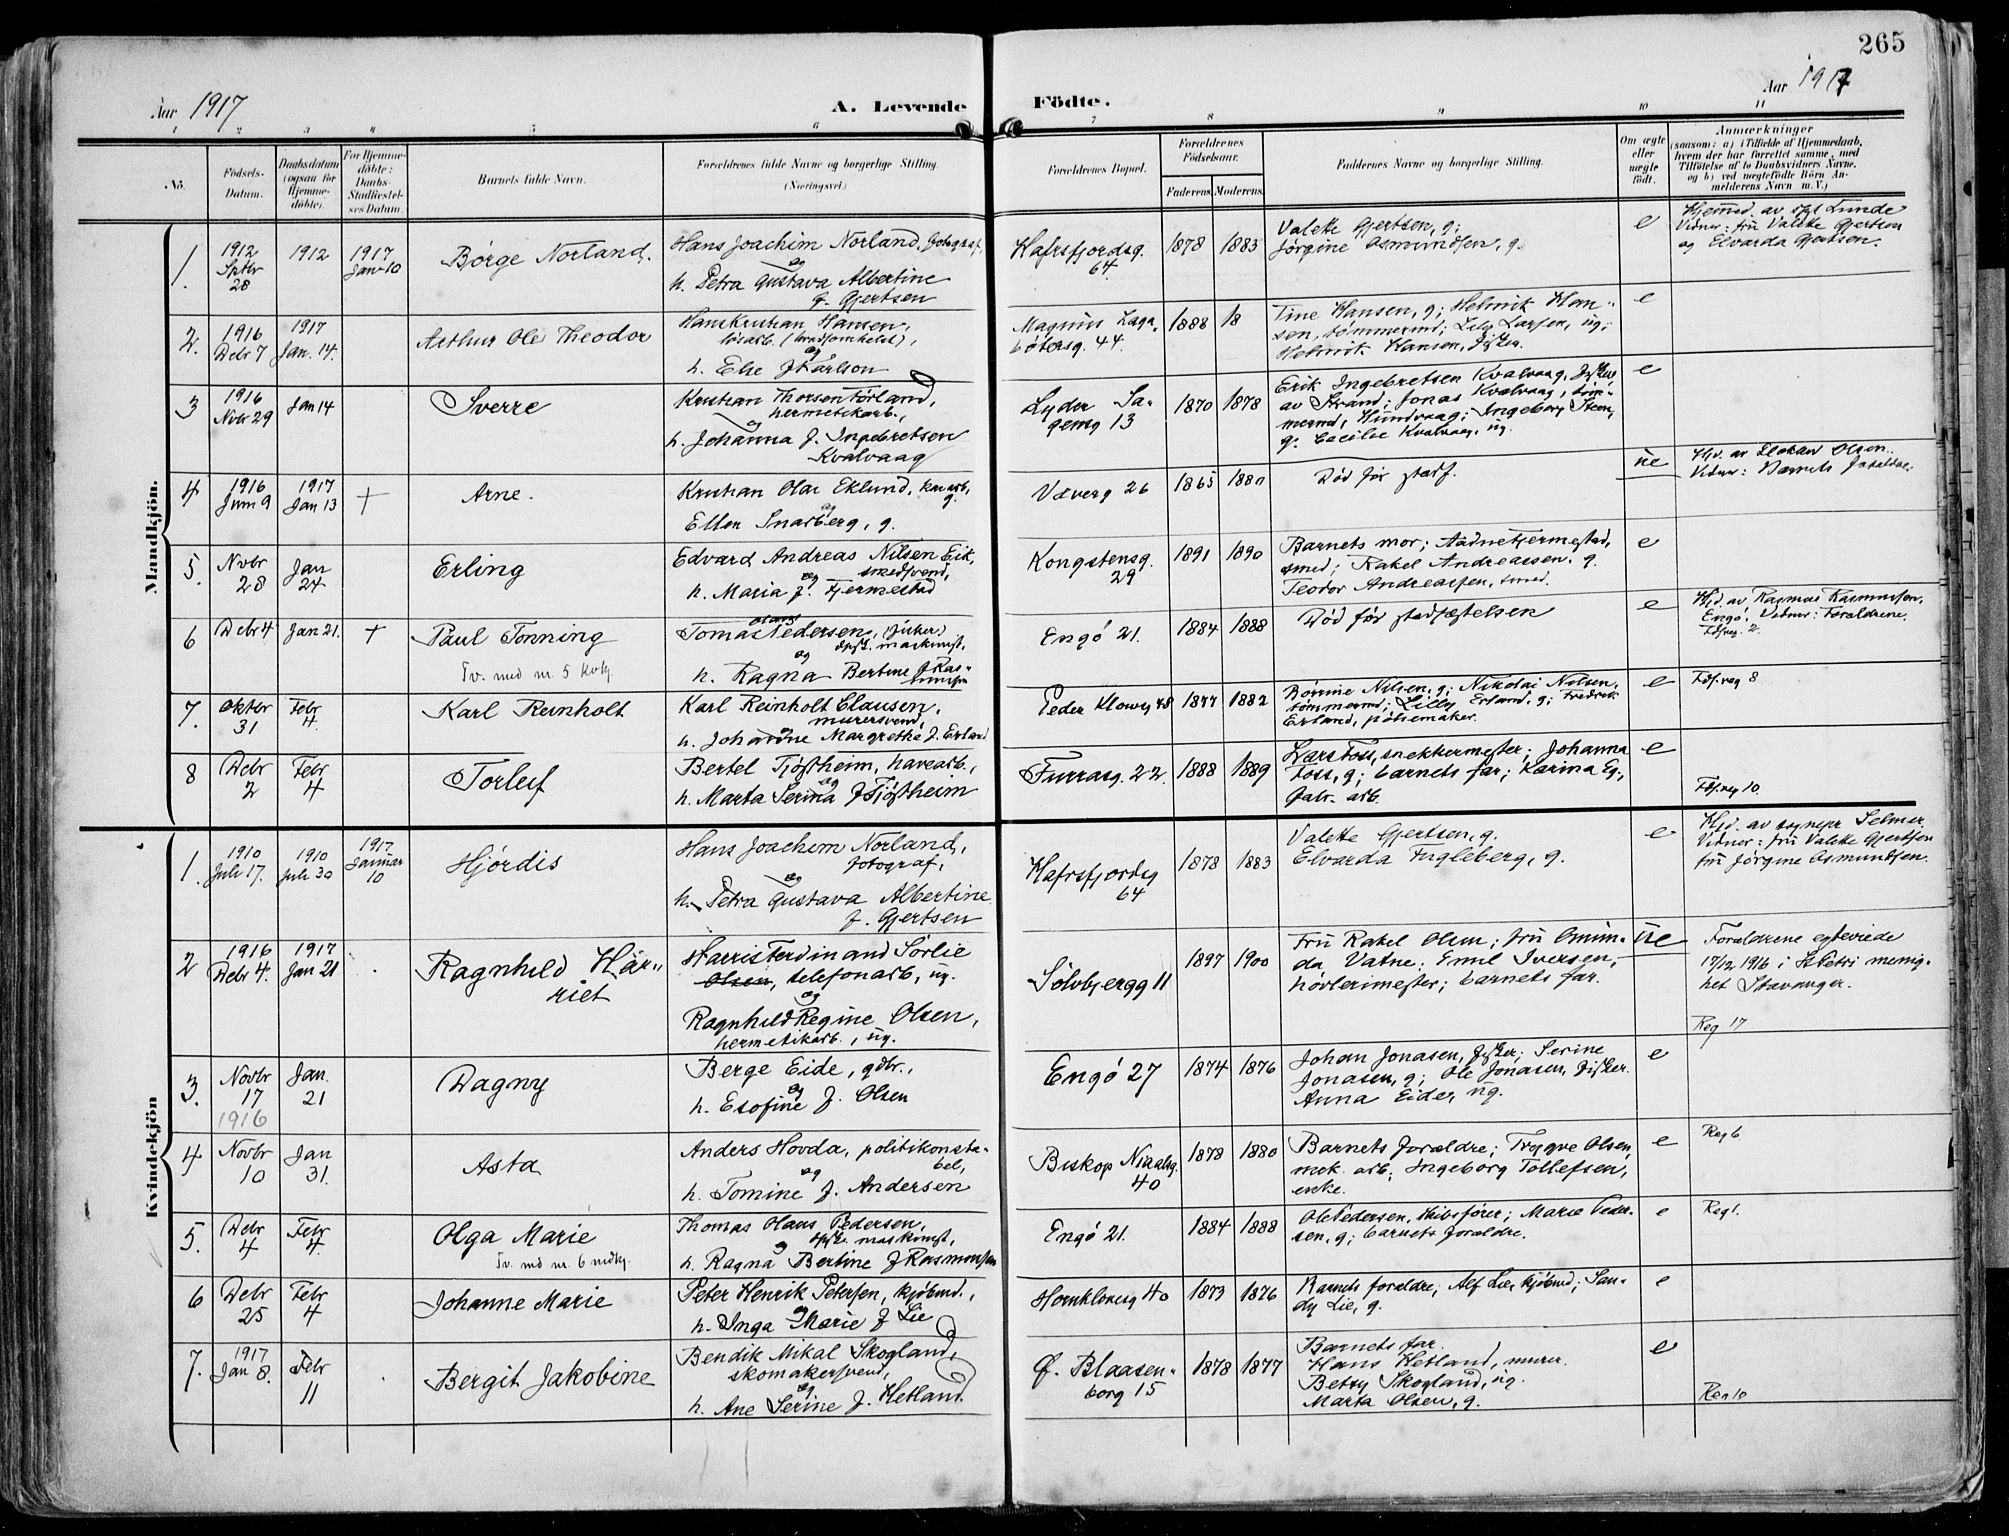 265
Aar 1917
A. Levende Födte.
Aar 1917
1 2 3 4 5 6 7 8 9 10 11
No.
Födsels-
Datum.
Daabsdatum
(ogsaa for
Hjemme-
döbte).
For Hjemme-
döbte:
Daabs-
Stadfæstel-
ses Datum.
Barnets fulde Navn.
Forældrenes fulde Navne og borgerlige Stilling.
(Næringsvei.)
Forældrenes Bopæl.
Forældrenes
Födselsaar.
Faderens. Moderens.
Faddernes Navne og borgerlige Stilling.
Om ægte
eller
uægte
født.
Anmærkninger
(saasom: a) i Tilfælde af Hjemmedaab,
hvem der har forrettet samme, med
Tilföielse af to Daabsvidners Navne,
og b) ved uægtefödte Börn An-
melderens Navn m. V.)
Mandkjön.
1. 1912
Sptbr
28
1912
1917
Jan 10
Børge Norland.
Hans Joachim Norland, fotograf,
og
h. Petra Gustava Albertine
f. Gjertsen
Hafrsfjordsg.
64.
1878 1883
Valette Gjertsen, g;
Jørgine Osmundsen, g.
e
Hjemmed. av Lunde
Vidner: fru Valette Gjertsen
og Elvarda Gjertsen.
2. 1916
Debr 7
1917
Jan. 14.
Arthur Ole Theodor
Hans Kristian Hansen,
løsarb. (
og
h. Else f Karlson
Magnus Laga-
bøtersg. 44.
1888 18
Tine Hansen, g; Helmik Han-
sen, tømmermd; Lilly Larsen, ug;
Helmik Hansen, fisker.
e
3 1916
Nvbr 29
Jan 14
Sverre
Kristian Thorsen Førland,
hermetikarb.,
og
h. Johanna f. Ingebretsen
Kvalvaag
Lyder Sa-
gensg 13
1870 1878
Erik Ingebretsen Kvalvaag, fisker
av Strand; Jonas Kvalvaag, tøm-
mermd, Hundvaag; Ingeborg Steen,
g. Cecilie Kvalvaag, ug.
e
4 1916
Juni 9
1917
Jan 13
+
Arne.
Kristian Olai Eklund,
g.
og
Ellen Snarberg, g.
26
1865 1880
Død før stadf.
ue
Hjd. av Olsen.
Vidner: Barnets
5. Nvbr
28
Jan
24
Erling
Edvard Andreas Nilsen Eik,
smedsvend,
og
h. Maria f. Tjermestad
Kongstensg.
29
1891 1890
Barnets mor; Aadne Tjermestad,
smed; Rakel Andreassen. g.
Teodor Andreassen, smed.
e
6 Debr 4
Jan 21.
+
Paul Tonning
Tv. med nr. 5 kvkj.
Olaus
Tomas Pedersen, (fisker)
dpsk. maskinist,
og
h. Ragna Bertine f Ras-
mussen
Engø 21.
1884 1888
Død før stadfæstelsen
e
Hjd. av Rasmus Rasmussen,
Engø. Vidner: Forældrene.
Fdsreg. 2.
7. Oktbr
31
Febr
4.
Karl Reinholt
Karl Reinholt Clausen,
murersvend,
h. Johanne Margrethe f. Erland
Peder Klowsg 48
1877 1882
Børrine Nilsen, g; Nikolai Nilsen,
tømmermd; Lilly Erland, g; Fredrik
Erland, pølsemaker.
e
Fdsreg 8
8 Debr
2
Febr
4
Torleif
Bertel Tjøstheim, havearb.,
og
h. Marta Serina f Tjøstheim
Furrasg. 22.
1888 1889
Lars Foss, snekkermester; Johanna
Foss, g; barnets far; Karina Eg.,
fabr. arb.
e
Fdsreg 10.
Kvindekjön
1. 1910
Juli 17.
1910
Juli 30
1917
Januar
10
Hjørdis
Hans Joachim Norland,
fotograf,
og
h. Petra Gustava Albertine
f. Gjertsen
Hafrsfjordsg
64
1878 1883
Valette Gjertsen, g.
Elvarda Fugleberg, g.
e
Hjd. av sognepr Selmer
Vidner: fru Valette Gjertsen
fru Jørgine Osmundsen.
2 1916
Debr 4.
1917
Jan 21
Ragnhild Har-
riet
Harris Ferdinand Sørlie
Olsen, telefonarb, ug.
og
Ragnhild Regine Olsen,
hermetikarb., ug.
Sölvbjergg 11
1897 1900
Fru Rakel Olsen; fru Omun-
da Vatne. Emil Iversen,
høvlerimester; barnets far.
ue
Forældrene egteviede
17/12 1916 i St Petri menig-
het Stavanger.
Reg 17
3. Novbr
17
1916
Jan.
21
Dagny
Berge Eide, gdbr.,
og
h. Esofine f. Olsen
Engø 27
1874 1876
Johan Jonasen, fisker; Serine
Jonasen, g; Ole Jonasen, fisker.
Anna Eide, ug.
e
4 Novbr
10
Jan
31.
Asta
Anders Hovda, politikonsta-
bel,
og
h. Tomine f. Andersen
Biskop Niealsg.
40
1878 1880
Barnets forældre; Trygve Olsen,
mek. arb; Ingeborg Tollefsen,
enke.
e
Reg 6
5. Debr
4
Febr
4
Olga Marie
Tv. md nr. 6 mdkj.
Thomas Olaus Pedersen,
dpsk. maskinist,
og
h. Ragna Bertine f Rasmussen
Engø 21.
1884 1888
Ole Pedersen, skibsfører; Marie Peder-
sen, g; barnets forældre.
e
Reg 1.
6 Debr
25
Febr
4
Johanne Marie
Peter Henrik Petersen, kjøbmd.,
og
h. Inga Marie f Lie
Hornklovesg 40
1873 1876
Barnets forældre, Alf Lie, kjøbmd; San-
dy Lie, g.
e
7. 1917
Jan 8.
Febr
11
Bergit Jakobine
Bendik Mikal Skogland,
skomakersvend,
og
h. Ane Serine f. Hetland.
Ø. Blaasen-
borg 15
1878 1877
Barnets far.
Hans Hetland, murer.
Betsy Skogland, ug.
Marta Olsen, g.
e
Reg 10